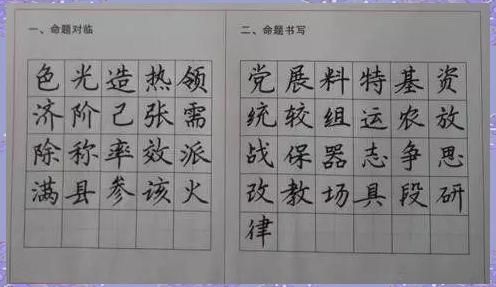 一、命题对临
色光造热领
济阶己张需
除称率效派
满县参该火
二、命题书写
党展料特基资
统较组运农放
战保器志争思
改教场具段研
律